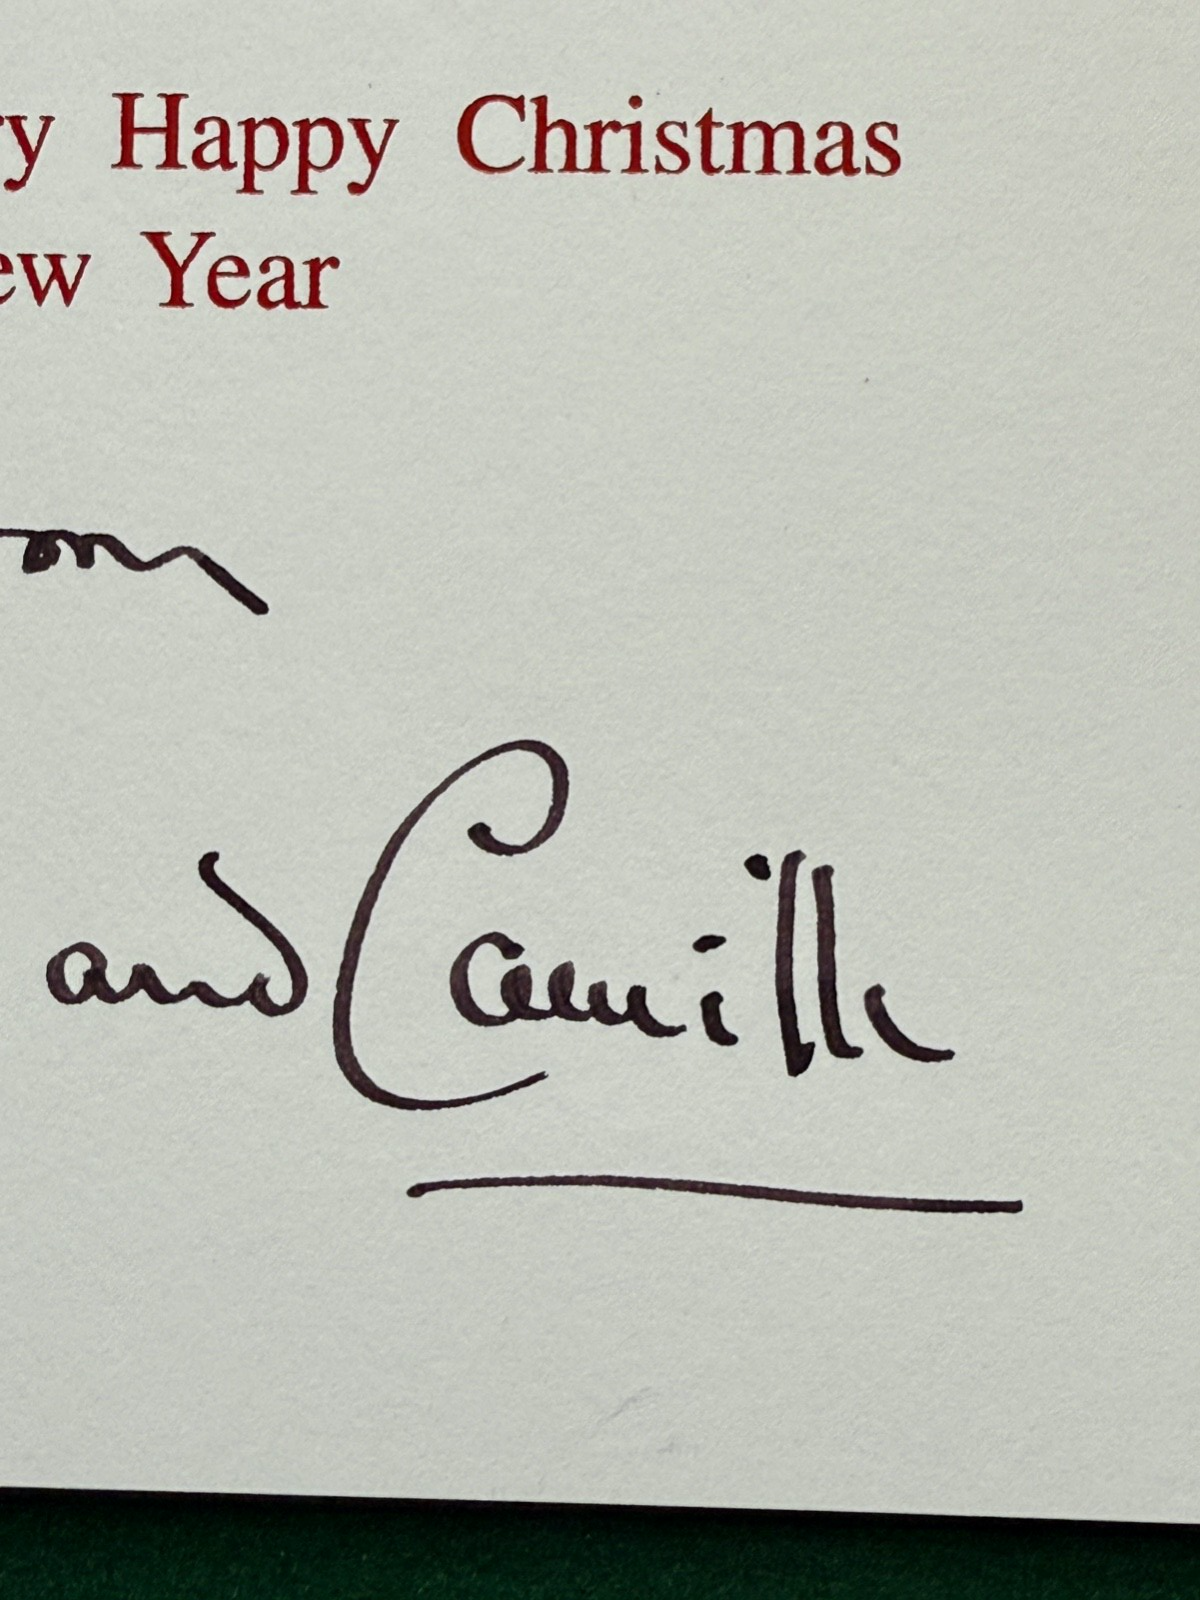 ry Happy Christmas
ew Year
from
and Camilla